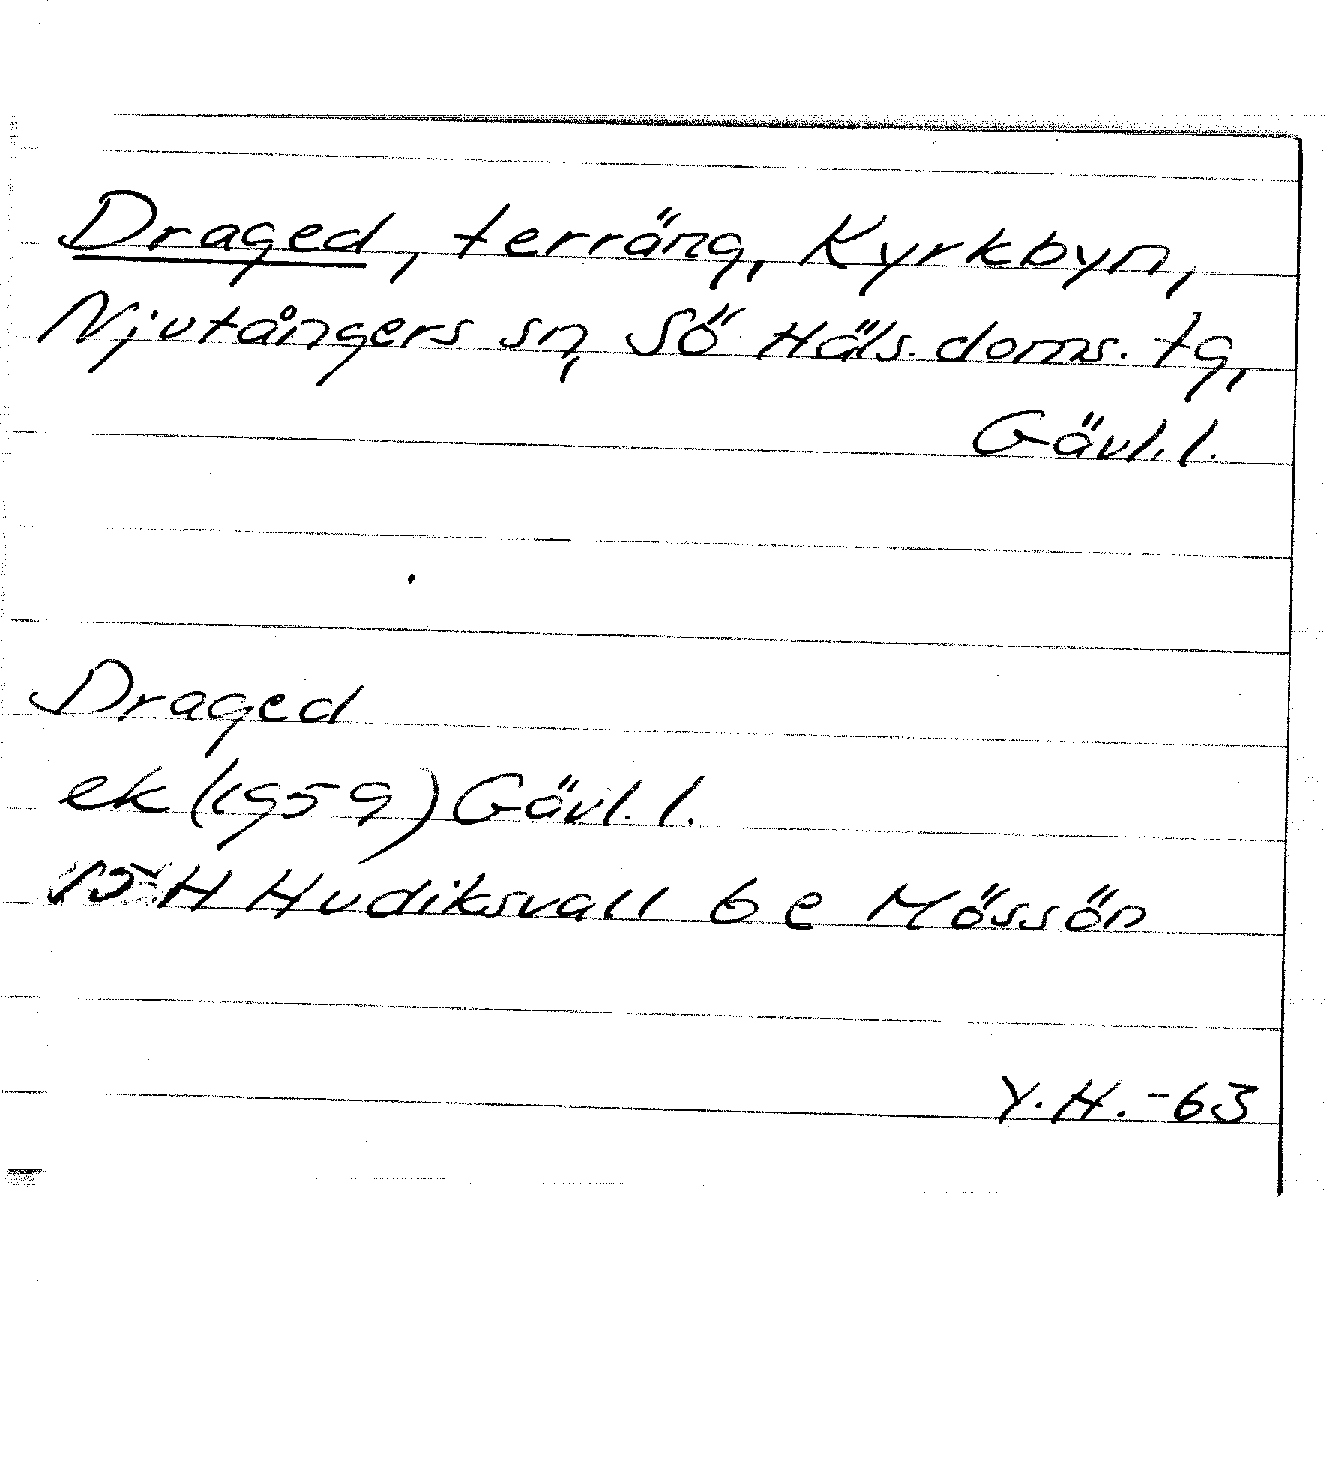 Draged, terräng, Kyrkbyn,
Njutångers sn, Sö Häls. doms. tg,
Gävl. l.
Draged
ek (1959) Gävl. l.
15 H Hudiksvall 6 e Mössön
Y.H. -63